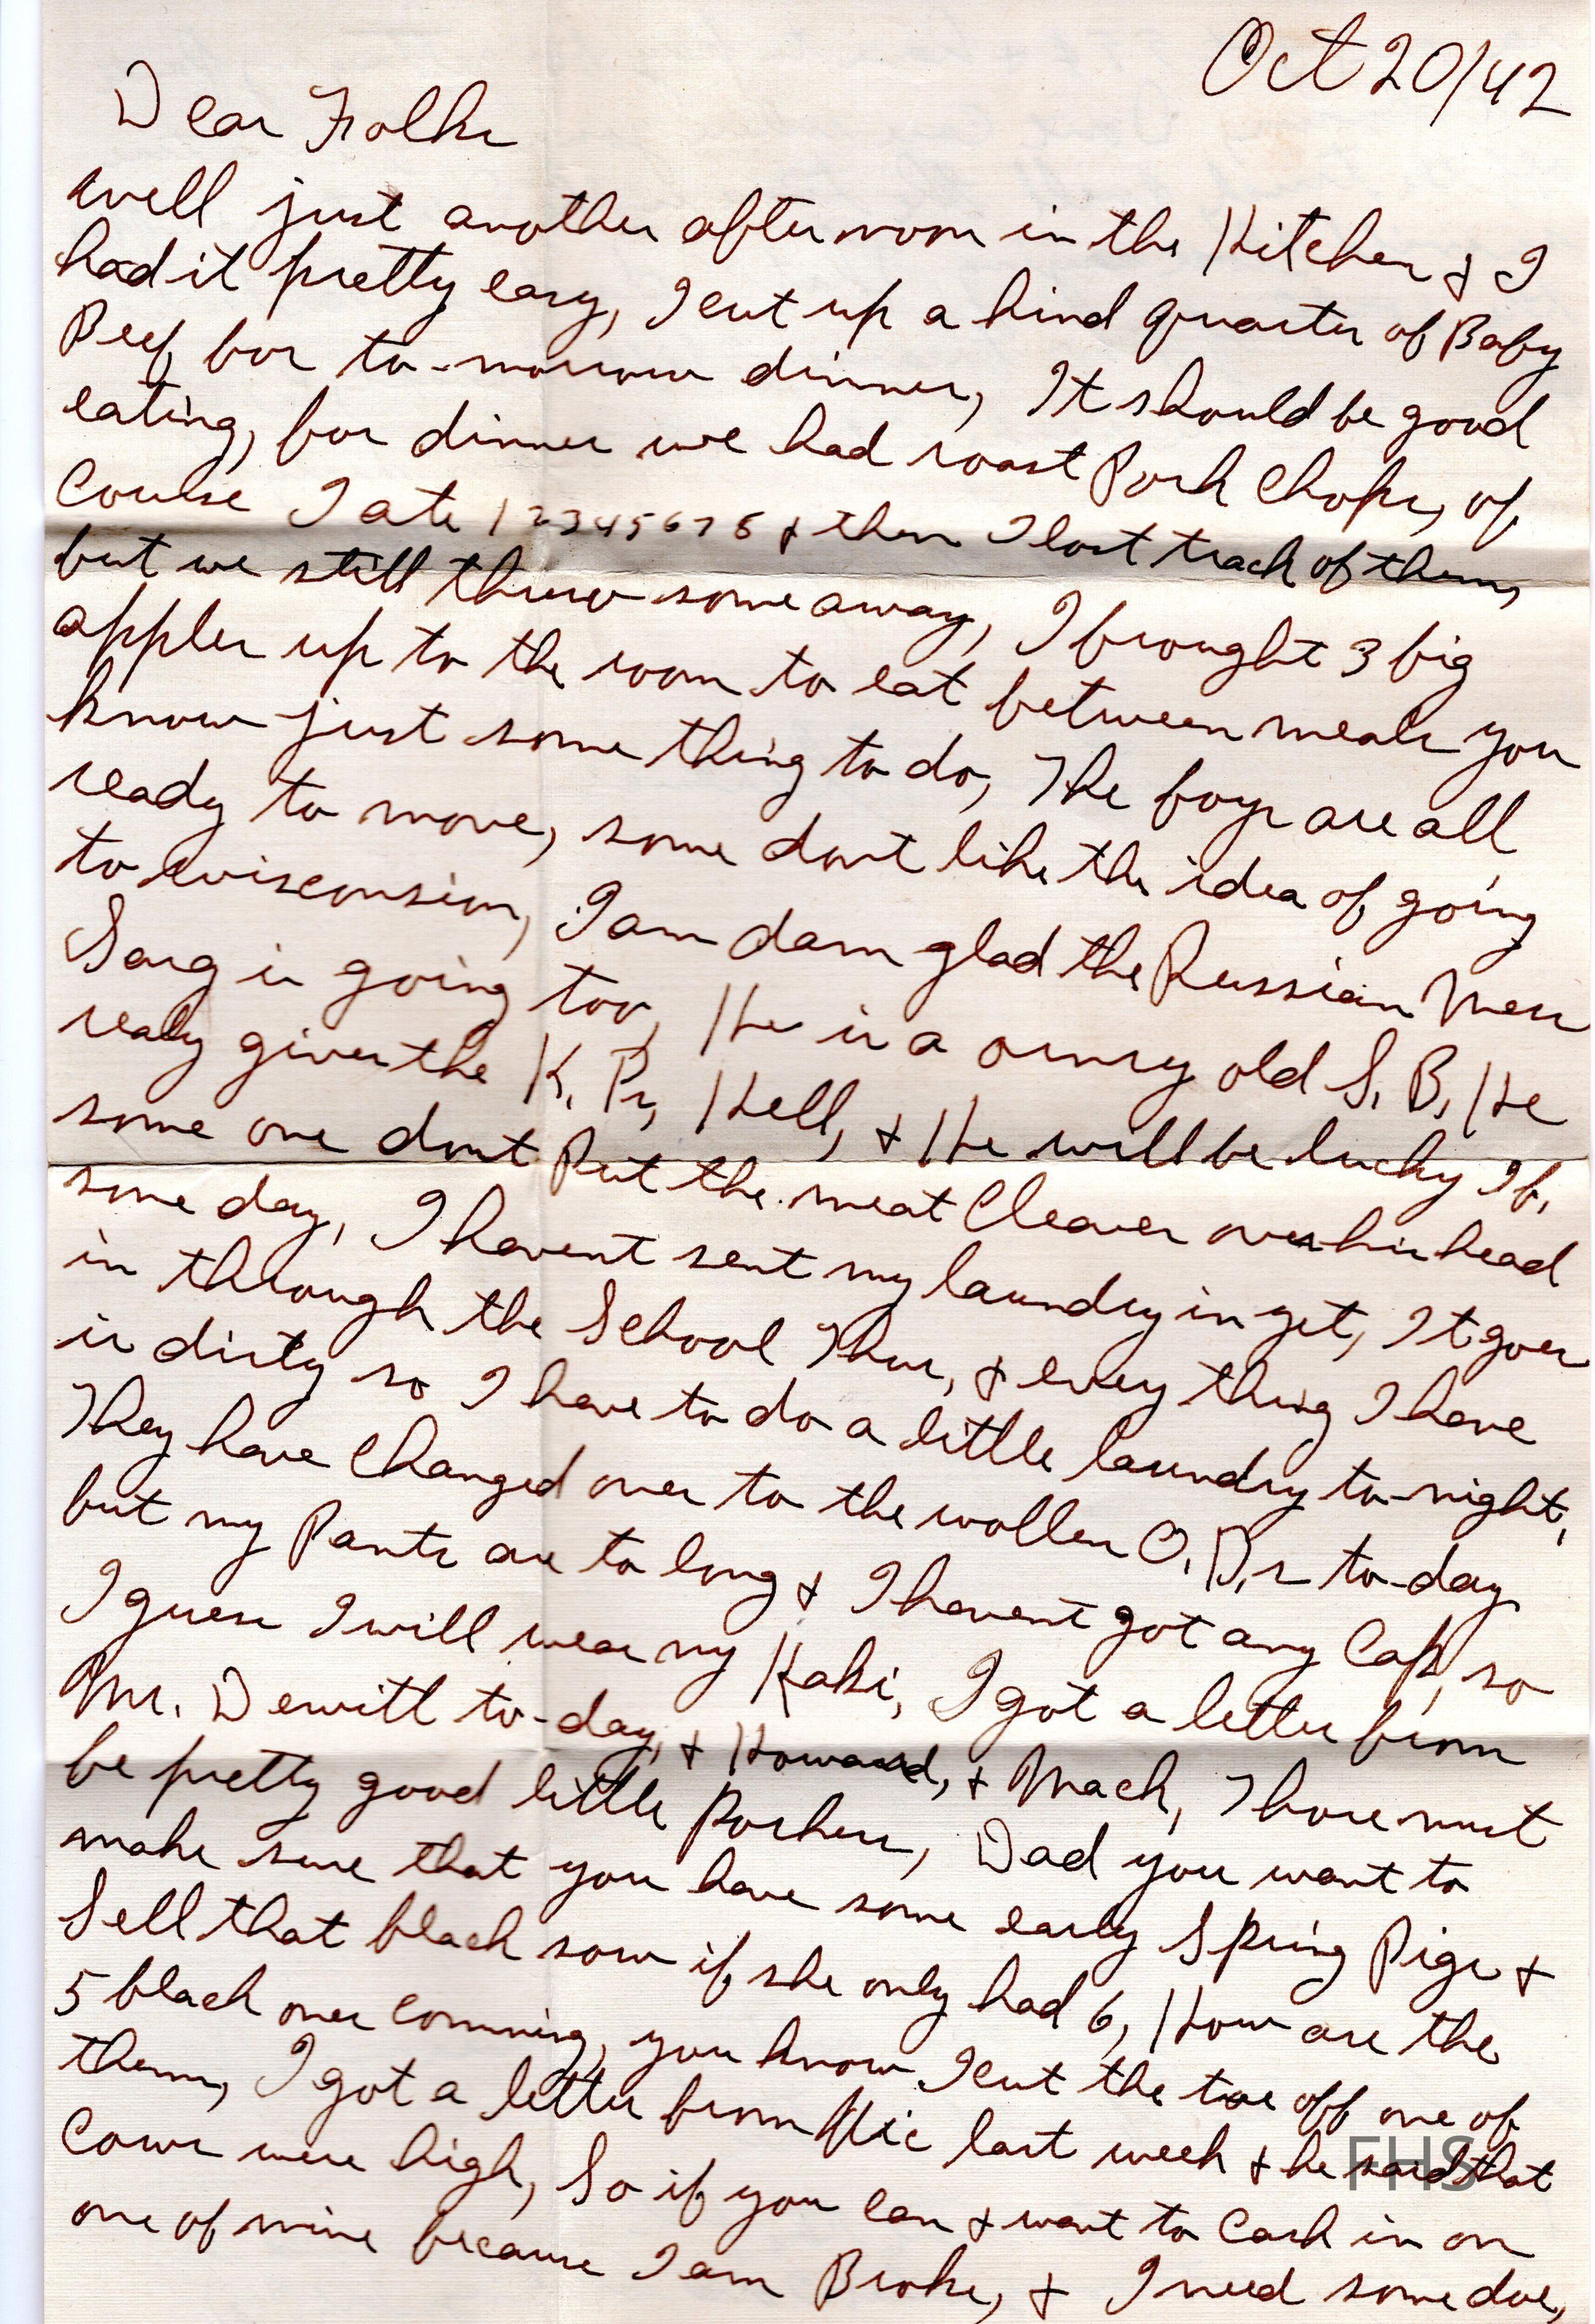 Oct 20/42
Dear Folks
well just another afternoon in the Kitchen & I
had it pretty easy, I cut up a hind quarter of Baby
Beef for to-morrow dinner, It should be good
eating, for dinner we had roast Pork Chops, of
Course I ate 1 2 3 4 5 6 7 8 & then I lost track of them,
but we still threw some away, I brought 3 big
apples up to the room to eat between meals you
know just some thing to do, The boys are all
ready to move, some dont like the idea of going
to wisconsion, I am dam glad the Russian Mess
Sarg is going too, He is a ornry old S. B. He
realy gives the K. Ps, Hell, & He will be lucky If,
some one dont Put the meat Cleaver over his head
some day, I havent sent my laundry in yet, It goes
in through the School Thur, & every thing I have
is dirty so I have to do a little laundry to-night,
They have Changed over to the wollen O. D,s to-day
but my Pants are to long & I havent got any Cap, so
I guess I will wear my Kaki, I got a letter from
Mr. Dewitt to-day, & Howard, & Mack, Those must
be pretty good little Porkers, Dad you want to
make sure that you have some early Spring Pigs &
Sell that black sow if she only had 6, How are the
5 black ones comming, you know I cut the toe off one of
them, I got a letter from Nic last week & he said that
Cows were high, So if you can & want to Cash in on
one of mine because I am Broke, & I need some doe,
FHS